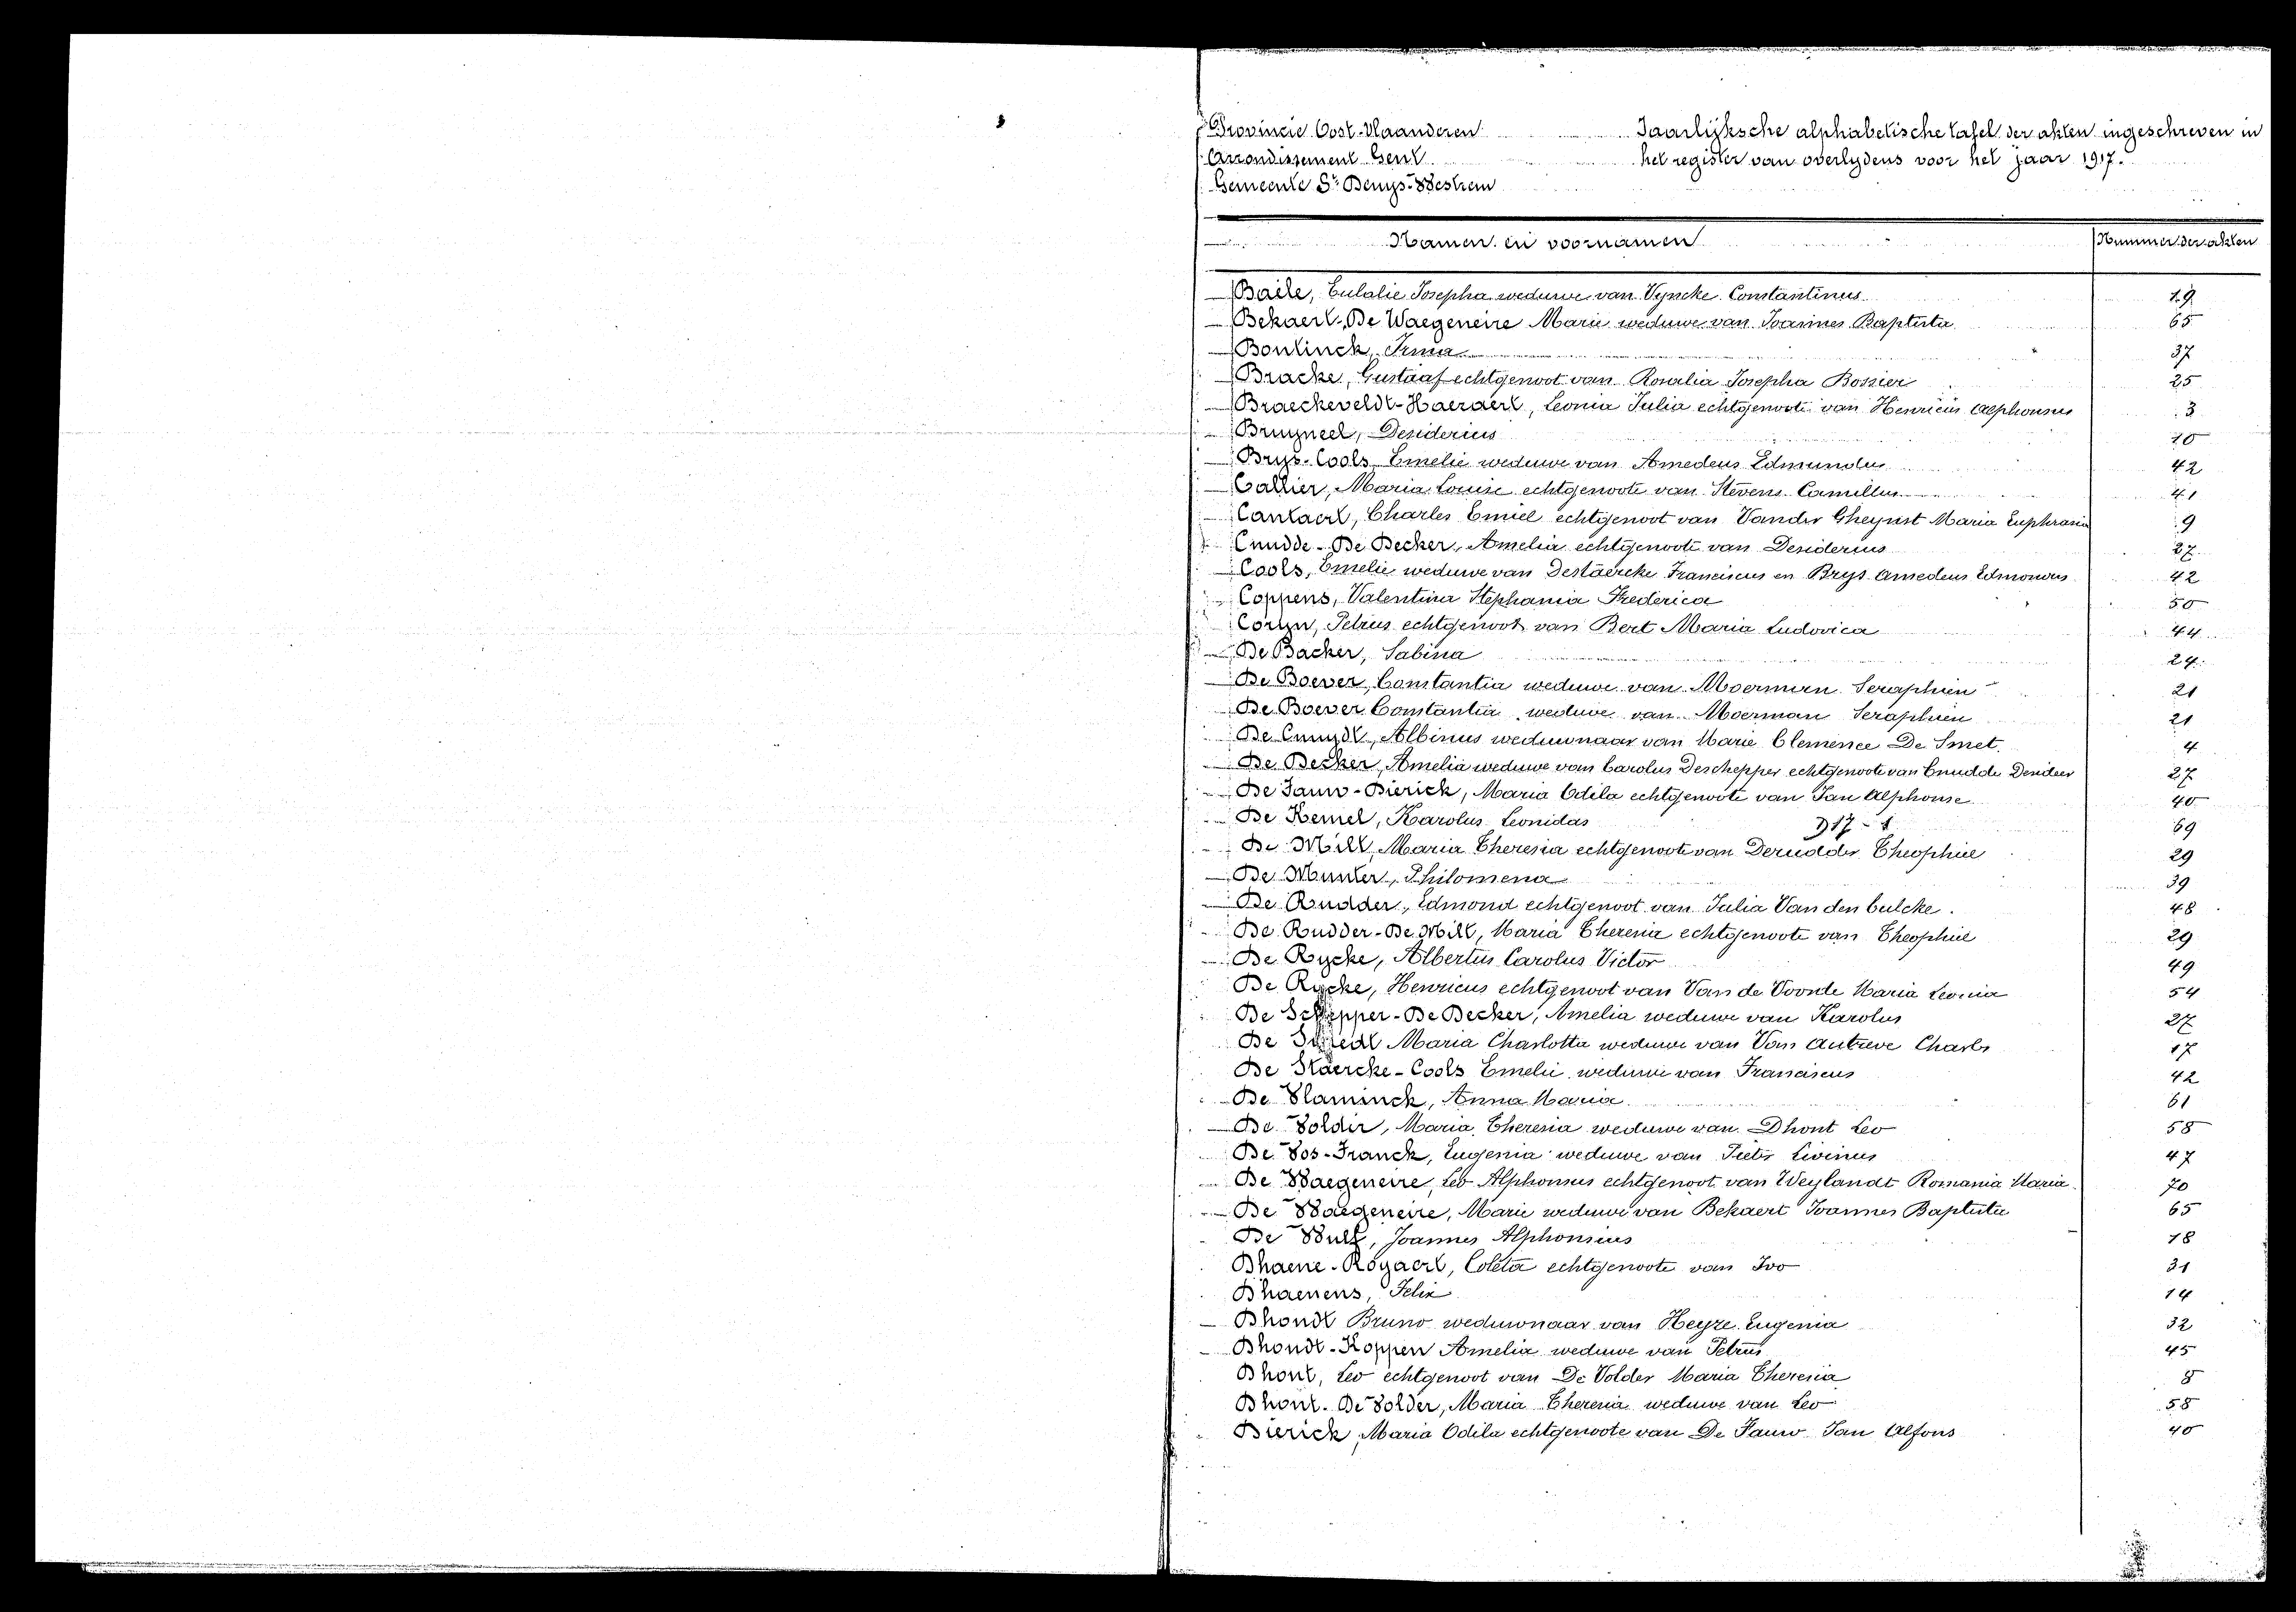 Provincie Oost-Vlaanderen
Arrondissement Gent
Gemeente St Denys-Westrem
Jaarlijksche alphabetische tafel der akten ingeschreven in
het register van overlydens voor het jaar 1917.
Namen en voornamen Nummer der akten
Baele, Eulalie Josepha weduwe van Vyncke Constantinus 19
Bekaert-De Waegeneire Marie weduwe van Joannes Baptista 65
Bontinck, Irma 37
Bracke, Gustaaf echtgenoot van Rosalia Josepha Bossier 25
Braeckeveldt-Haeraert, Leonia Julia echtgenoote van Henricus Alphonsus 3
Bruyneel, Desiderius 10
Brys-Cools Emelie weduwe van Amedeus Edmundus 42
Callier, Maria Louise echtgenoote van Stevens Camillus 41
Cantaert, Charles Emiel echtgenoot van Vander Gheynst Maria Euphrasia 9
Cnudde-De Becker, Amelia echtgenoote van Desiderius 27
Cools, Emelie weduwe van Destaercke Franciscus en Brys Amedeus Edmondus 42
Coppens, Valentina Stephania Frederica 50
Coryn, Petrus echtgenoot van Bert Maria Ludovica 44
De Backer, Sabina 24
De Boever, Constantia weduwe van Moerman Seraphien 21
De Boever Constantia weduwe van Moerman Seraphien 21
De Cnuydt, Albinus weduwnaar van Marie Clemence De Smet 4
De Becker, Amelia weduwe van Carolus Deschepper echtgenoote van Cnudde Desideer 27
De Fauw-Dierick, Maria Odila echtgenoote van Jan Alphonse 40
De Kemel, Karolus Leonidas 917-1 69
De Milt, Maria Theresia echtgenoote van Derudder Theophiel 29
De Munter, Philomena 39
De Rudder, Edmond echtgenoot van Julia Van den Bulcke. 48
De Rudder-De Milt, Maria Theresia echtgenoote van Theophiel 29
De Rycke, Albertus Carolus Victor 49
De Rycke, Henricus echtgenoot van Van de Voorde Maria Leonia 54
De Schepper-De Becker, Amelia weduwe van Karolus 27
De Maria Charlotta weduwe van Van Autreve Charles 17
De Staercke-Cools Emelie weduwe van Franciscus 42
De Vlaminck, Anna Maria 61
De Volder, Maria Theresia weduwe van Dhont Leo 58
De Vos-Franck, Eugenia weduwe van Pieter Livinus 47
De Waegeneire, Leo Alphonsus echtgenoot van Weylandt Romania Maria 70
De Waegeneire, Marie weduwe van Bekaert Joannes Baptista 65
De Wulf, Joannes Alphonsius 18
Dhaene-Rogaert, Coleta echtgenoote van Ivo 31
Dhaenens, Felix 14
Dhondt Bruno weduwnaar van Heyze Eugenia 32
Dhondt-Koppen Amelia weduwe van Petrus 45
Dhont, Leo echtgenoot van De Volder Maria Theresia 8
Dhont-De Volder, Maria Theresia weduwe van Leo 58
Dierick, Maria Odila echtgenoote van De Fauw Jan Alfons 40